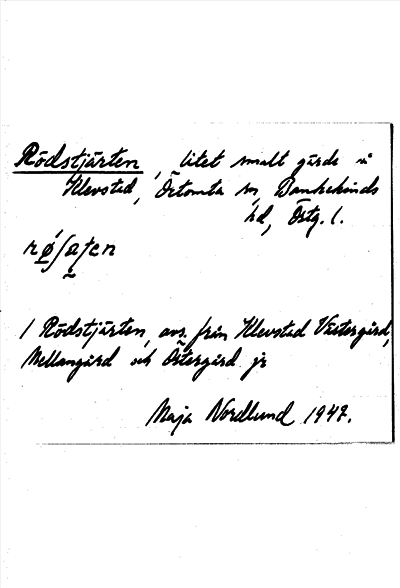 Rödstjärten, litet smalt gärde i
Klevstad, Örtomta sn, Bankekinds
hd, Östg. l.
1 Rödstjärten, avs. från Klevstad Västergård,
Mellangård och Östergård jr
Maja Nordlund 1947.